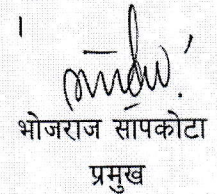 ।
भोजराज सापकोटा
प्रमुख